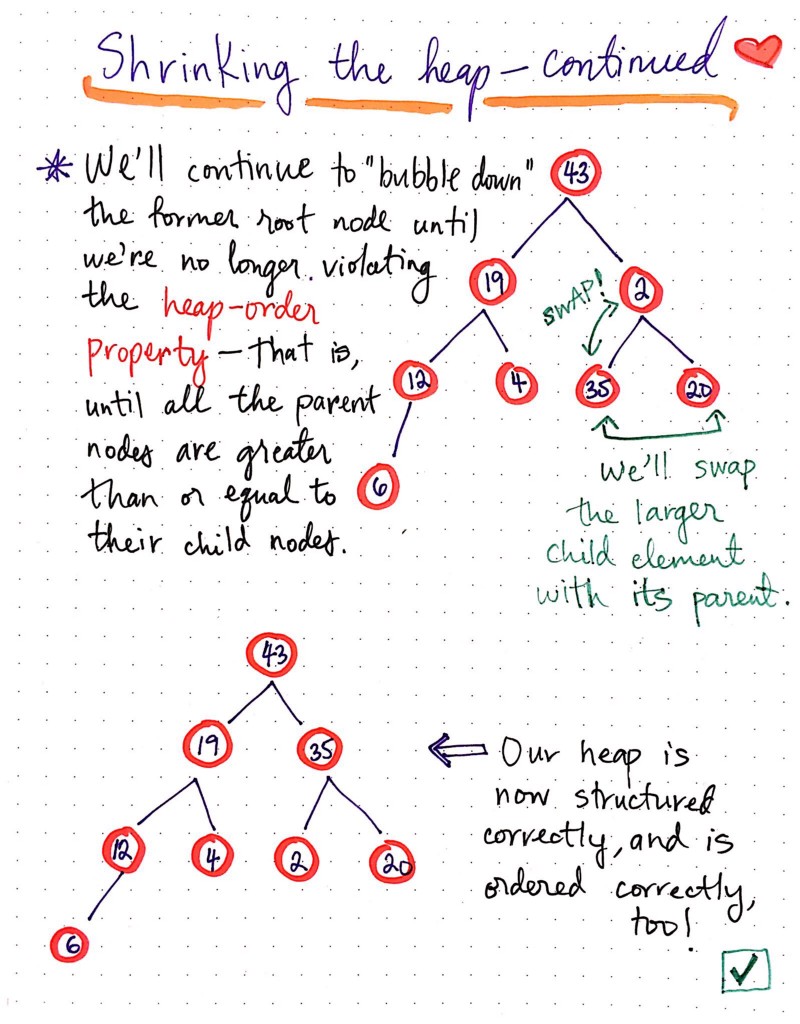 Shrinking the heap - continued
* We'll continue to "bubble down"
the former root node until
we're no longer violating
the heap-order
property - that is,
until all the parent
nodes are greater
than or equal to
their child nodes.
43
19
2
SWAP!
12
4
35
20
6
We'll swap
the larger
child element
with its parent.
43
19
35
12
4
2
20
6
Our heap is
now structured
correctly, and is
ordered correctly,
too!